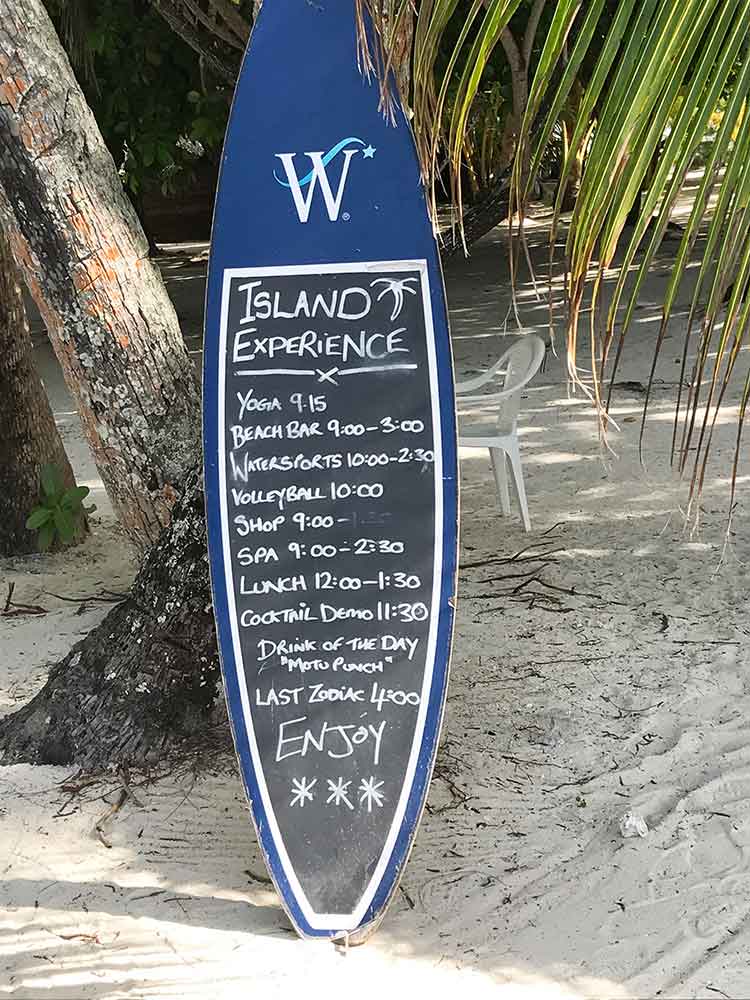 W
ISLAND
EXPERIENCE
YOGA 9.15
BEACH BAR 9:00-3:00
WATERSPORTS 10:00-2:30
VOLLEYBALL 10:00
SHOP 9:00-
SPA 9:00-2:30
LUNCH 12:00-1:30
COCKTAIL DEMO 11:30
DRINK OF THE DAY
"MOTU PUNCH"
LAST ZODIAC 4:00
ENJOY